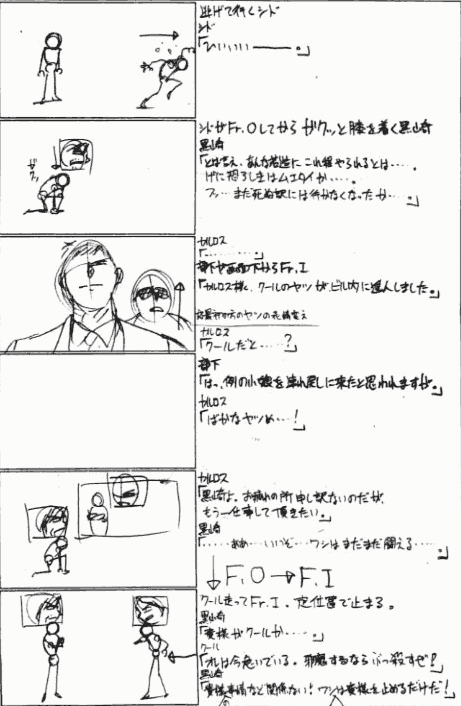 逃げて行くシド
シド
「ひいいい――。」
シドがFr.Oしてから ガクッと膝を着く黒崎
黒崎
「とは言え、あんな若造に これ程やられるとは・・・。
げに恐ろしきはムエタイか・・・。
フッ…まだ死ぬ訳には行かなくなったか…。」
ガクッ
カルロス
「・・・・・・。」
部下が画面下からFr.I
「カルロス様、クールのヤツがビル内に進入しました。」
カルロス
「クールだと・・・・?」
部下
「はっ、例の小娘を連れ戻しに来たと思われますが。」
カルロス
「ばかなヤツめ・・・・!」
カルロス
「黒崎よ、お疲れの所申し訳ないのだが、
もう一仕事して頂きたい。」
黒崎
「・・・・・ああ…いいぞ…ワシはまだまだ闘える・・・・。」
F.O→F.I
クール走ってFr.I。定位置で止まる。
黒崎
「貴様がクールか・・・・。」
クール
「オレは今急いでいる。邪魔するならぶっ殺すぜ!」
黒崎
「貴様の事情など関係ない!ワシは貴様を止めるだけだ!」